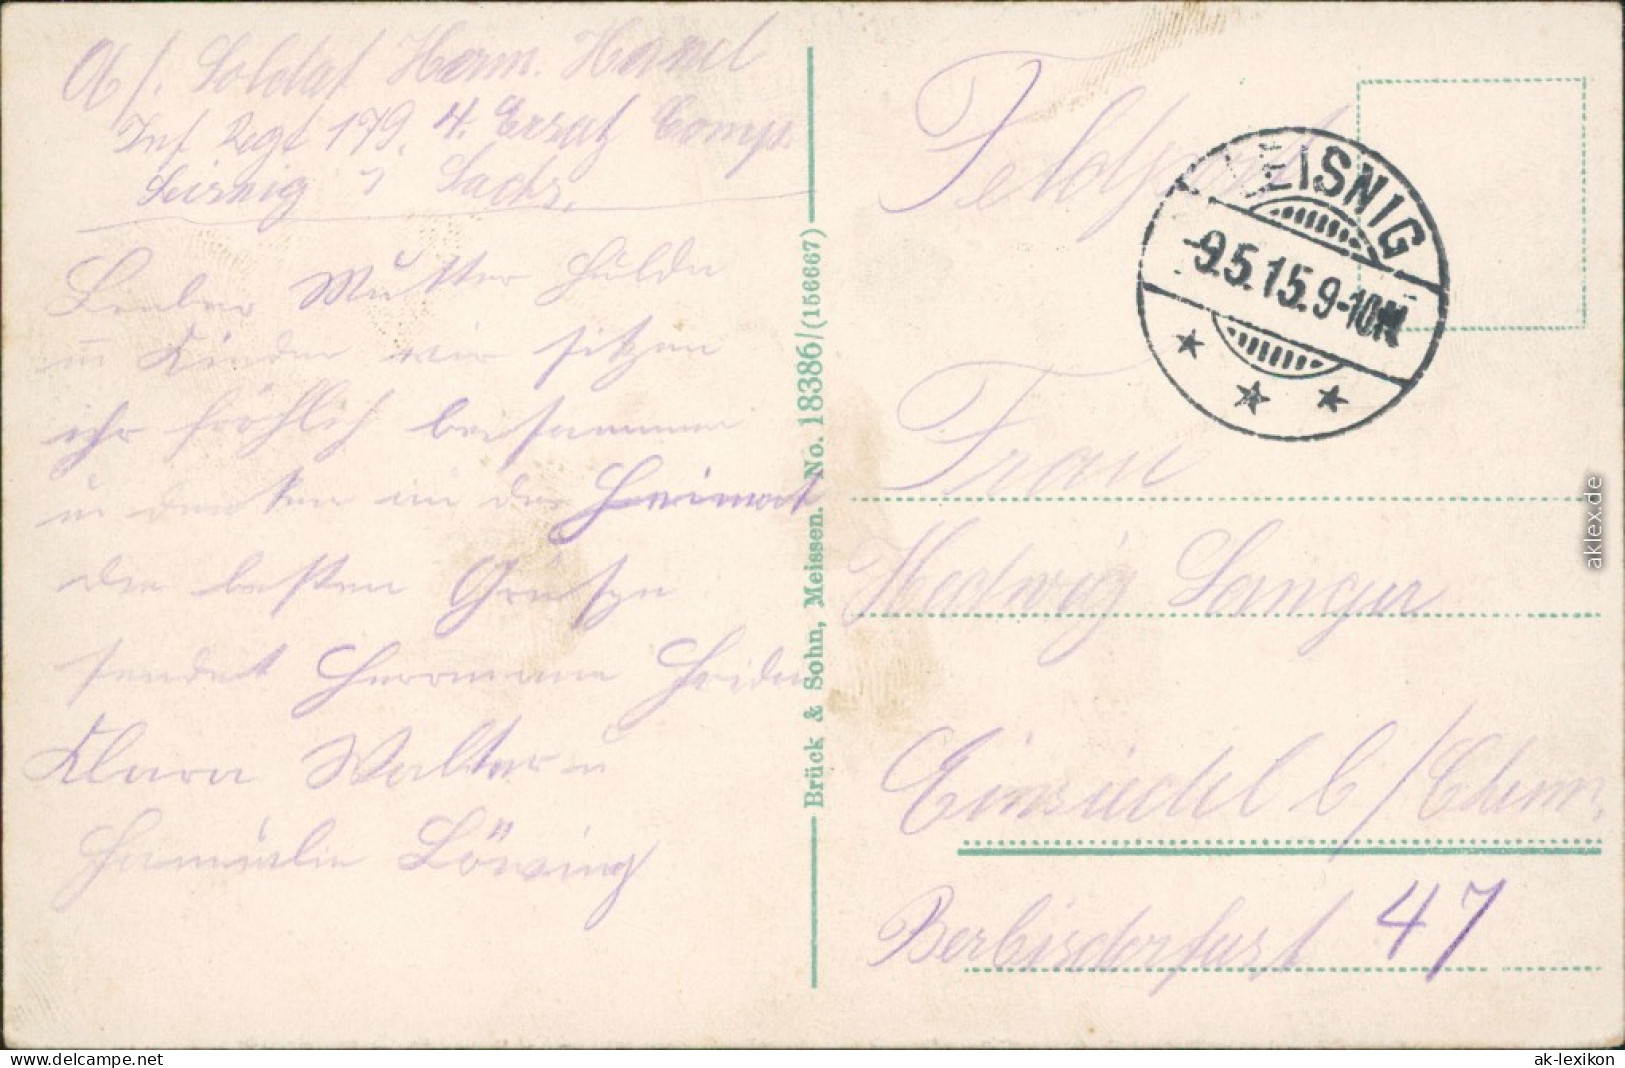 Abs. Soldat Herm. Hand
Inf Regt 179. 4. Ersatz Comp.
Leisnig i Sachs.
Lieber Mutter Hulda
u Kinder wir sitzen
ihr fröhlich beisammen
u denken in der Heimat
die besten Grüße
sendet Herrmann
Klara Walter u
Familie Löwing
Brück & Sohn, Meissen. No. 18386/(156667)
Feldpost
LEISNIG
-9.5.15.9-10N.
Frau
Hedwig Langer
Einsiedel b/Chem.
Berbisdorferst 47
aklex.de
delcampe.net
ak-lexikon